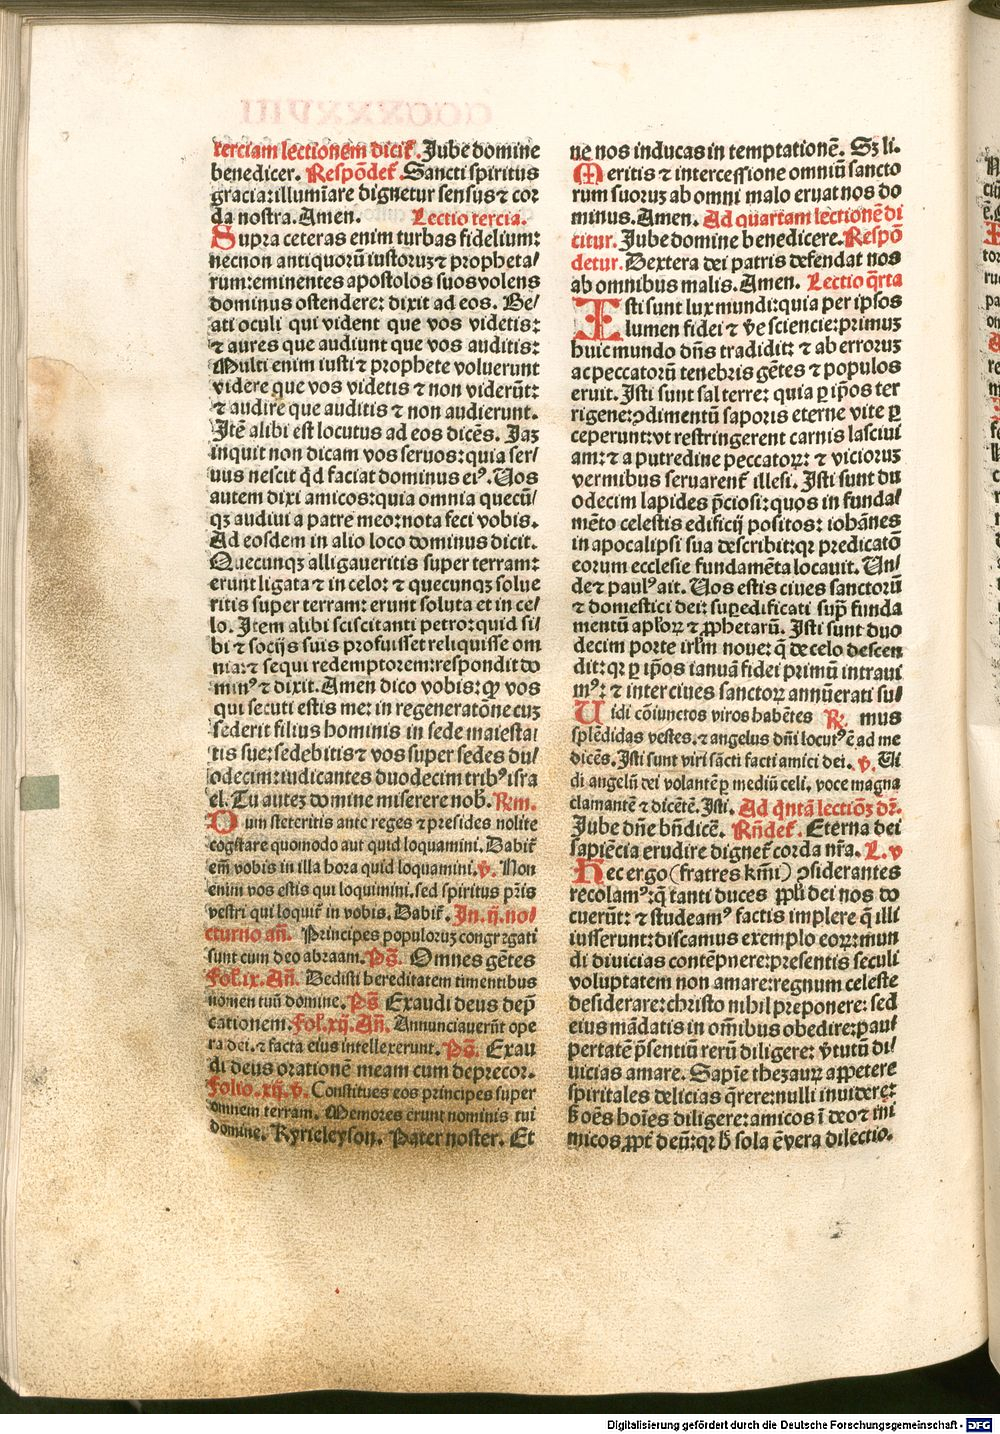 terciam lectionem dicit᷑. Jube domine
benedicer. Respōdet᷑. Sancti spiritus
gracia: illumīare dignetur sensus ⁊ cor
da nostra. Amen. Lectio tercia.
Supra ceteras enim turbas fidelium:
necnon antiquorū iustoruꝫ ⁊ propheta/
rum: eminentes apostolos suos volens
dominus ostendere: dixit ad eos. Be/
ati oculi qui vident que vos videtis:
⁊ aures que audiunt que vos auditis:
Multi enim iusti ⁊ prophete voluerunt
videre que vos videtis ⁊ non viderūt:
⁊ audire que auditis ⁊ non audierunt.
Itē alibi est locutus ad eos dicēs. Jaꝫ
inquit non dicam vos seruos: quia ser/
uus nescit qd̄ faciat dominus eiꝰ. Uos
autem dixi amicos: quia omnia quecū/
qꝫ audiui a patre meo: nota feci vobis.
Ad eosdem in alio loco dominus dicit.
Quecunqꝫ alligaueritis super terram:
erunt ligata ⁊ in celo: ⁊ quecunqꝫ solue
ritis super terram: erunt soluta et in ce/
lo. Item alibi sciscitanti petro: quid si/
bi ⁊ socijs suis profuisset reliquisse om
nia: ⁊ sequi redemptorem: respondit do
minꝰ ⁊ dixit. Amen dico vobis: ꝙ vos
qui secuti estis me: in regeneratōne cuꝫ
sederit filius hominis in sede maiesta/
tis sue: sedebitis ⁊ vos super sedes du/
odecim: iudicantes duodecim tribꝰ isra
el. Tu auteꝫ domine miserere nob̄. Rm̄.
Dum steteritis ante reges ⁊ presides nolite
cogitare quomodo aut quid loquamini. Dabit᷑
em̄ vobis in illa hora quid loquamini. v̄. Non
enim vos estis qui loquimini, sed spiritus pr̄is
vestri qui loquit᷑ in vobis. Dabit᷑. In .ij. no/
cturno an̄. Principes populoruꝫ congregati
sunt cum deo abraam. Ps̄. Omnes gētes
fol. ix. An̄. Dedisti hereditatem timentibus
nomen tuū domine. Ps̄ Exaudi deus dep̄
cationem. fol. xij. An̄. Annunciauerūt ope
ra dei. ⁊ facta eius intellexerunt. Ps̄. Exau
di deus orationē meam cum deprecor.
folio. xij. v̄. Constitues eos principes super
omnem terram. Memores erunt nominis tui
domine. Kyrieleyson. Pater noster. Et
ne nos inducas in temptationē. Sꝫ li.
Meritis ⁊ intercessione omniū sancto
rum suoruꝫ ab omni malo eruat nos do
minus. Amen. Ad quartam lectionē di
citur. Jube domine benedicere. Respō
detur. Dextera dei patris defendat nos
ab omnibus malis. Amen. Lectio q̄rta
Isti sunt lux mundi: quia per ipsos
lumen fidei ⁊ v̄e sciencie: primuꝫ
huic mundo dn̄s tradidit: ⁊ ab erroruꝫ
ac peccatorū tenebris gētes ⁊ populos
eruit. Isti sunt sal terre: quia ꝑ ip̄os ter
rigene: ꝯdimentū saporis eterne vite ꝑ
ceperunt: vt restringerent carnis lasciui
am: ⁊ a putredine peccatoꝝ: ⁊ vicioruꝫ
vermibus seruarent᷑ illesi. Isti sunt du
odecim lapides p̄ciosi: quos in funda/
mēto celestis edificij positos: iohānes
in apocalipsi sua describit: qꝛ predicatō
eorum ecclesie fundamēta locauit. Un/
de ⁊ paulꝰ ait. Uos estis ciues sanctorū
⁊ domestici dei: suꝑedificati sup̄ funda
mentū apl'oꝝ ⁊ ꝓphetarū. Isti sunt duo
decim porte irl'm noue: q̄ de celo descen
dit: qꝛ ꝑ ip̄os ianuā fidei primū intraui
mꝰ: ⁊ inter ciues sanctoꝝ annūerati su/
Uidi cōiunctos viros habētes ℟. mus
splēdidas vestes. ⁊ angelus dn̄i locutꝰ ē ad me
dicēs. Isti sunt viri sācti facti amici dei. v̄. Ui
di angelū dei volantē ꝑ mediū celi, voce magna
clamantē ⁊ dicētē. Isti. Ad qn̄tā lectiōꝫ dr̄.
Jube dn̄e bn̄dicē. Rn̄det᷑. Eterna dei
sapiēcia erudire dignet᷑ corda nr̄a. L. v
Hec ergo (fratres km̄i) ꝯsiderantes
recolamꝰ: q̄ tanti duces ppl̄i dei nos do
cuerūt: ⁊ studeamꝰ factis implere q̄ illi
iusserunt: discamus exemplo eoꝝ: mun
di diuicias contēpnere: presentis seculi
voluptatem non amare: regnum celeste
desiderare: christo nihil preponere: sed
eius mādatis in om̄ibus obedire: pau/
pertatē p̄sentiū rerū diligere: v̄tutū di/
uicias amare. Sapīe thezauꝝ appetere
spiritales delicias q̄rere: nulli inuidere:
ꝫ oēs hoīes diligere: amicos ī deo ⁊ ini
micos ꝓpt̄ deū: qꝛ h̄ sola ē vera dilectio.
Digitalisierung gefördert durch die Deutsche Forschungsgemeinschaft - DFG